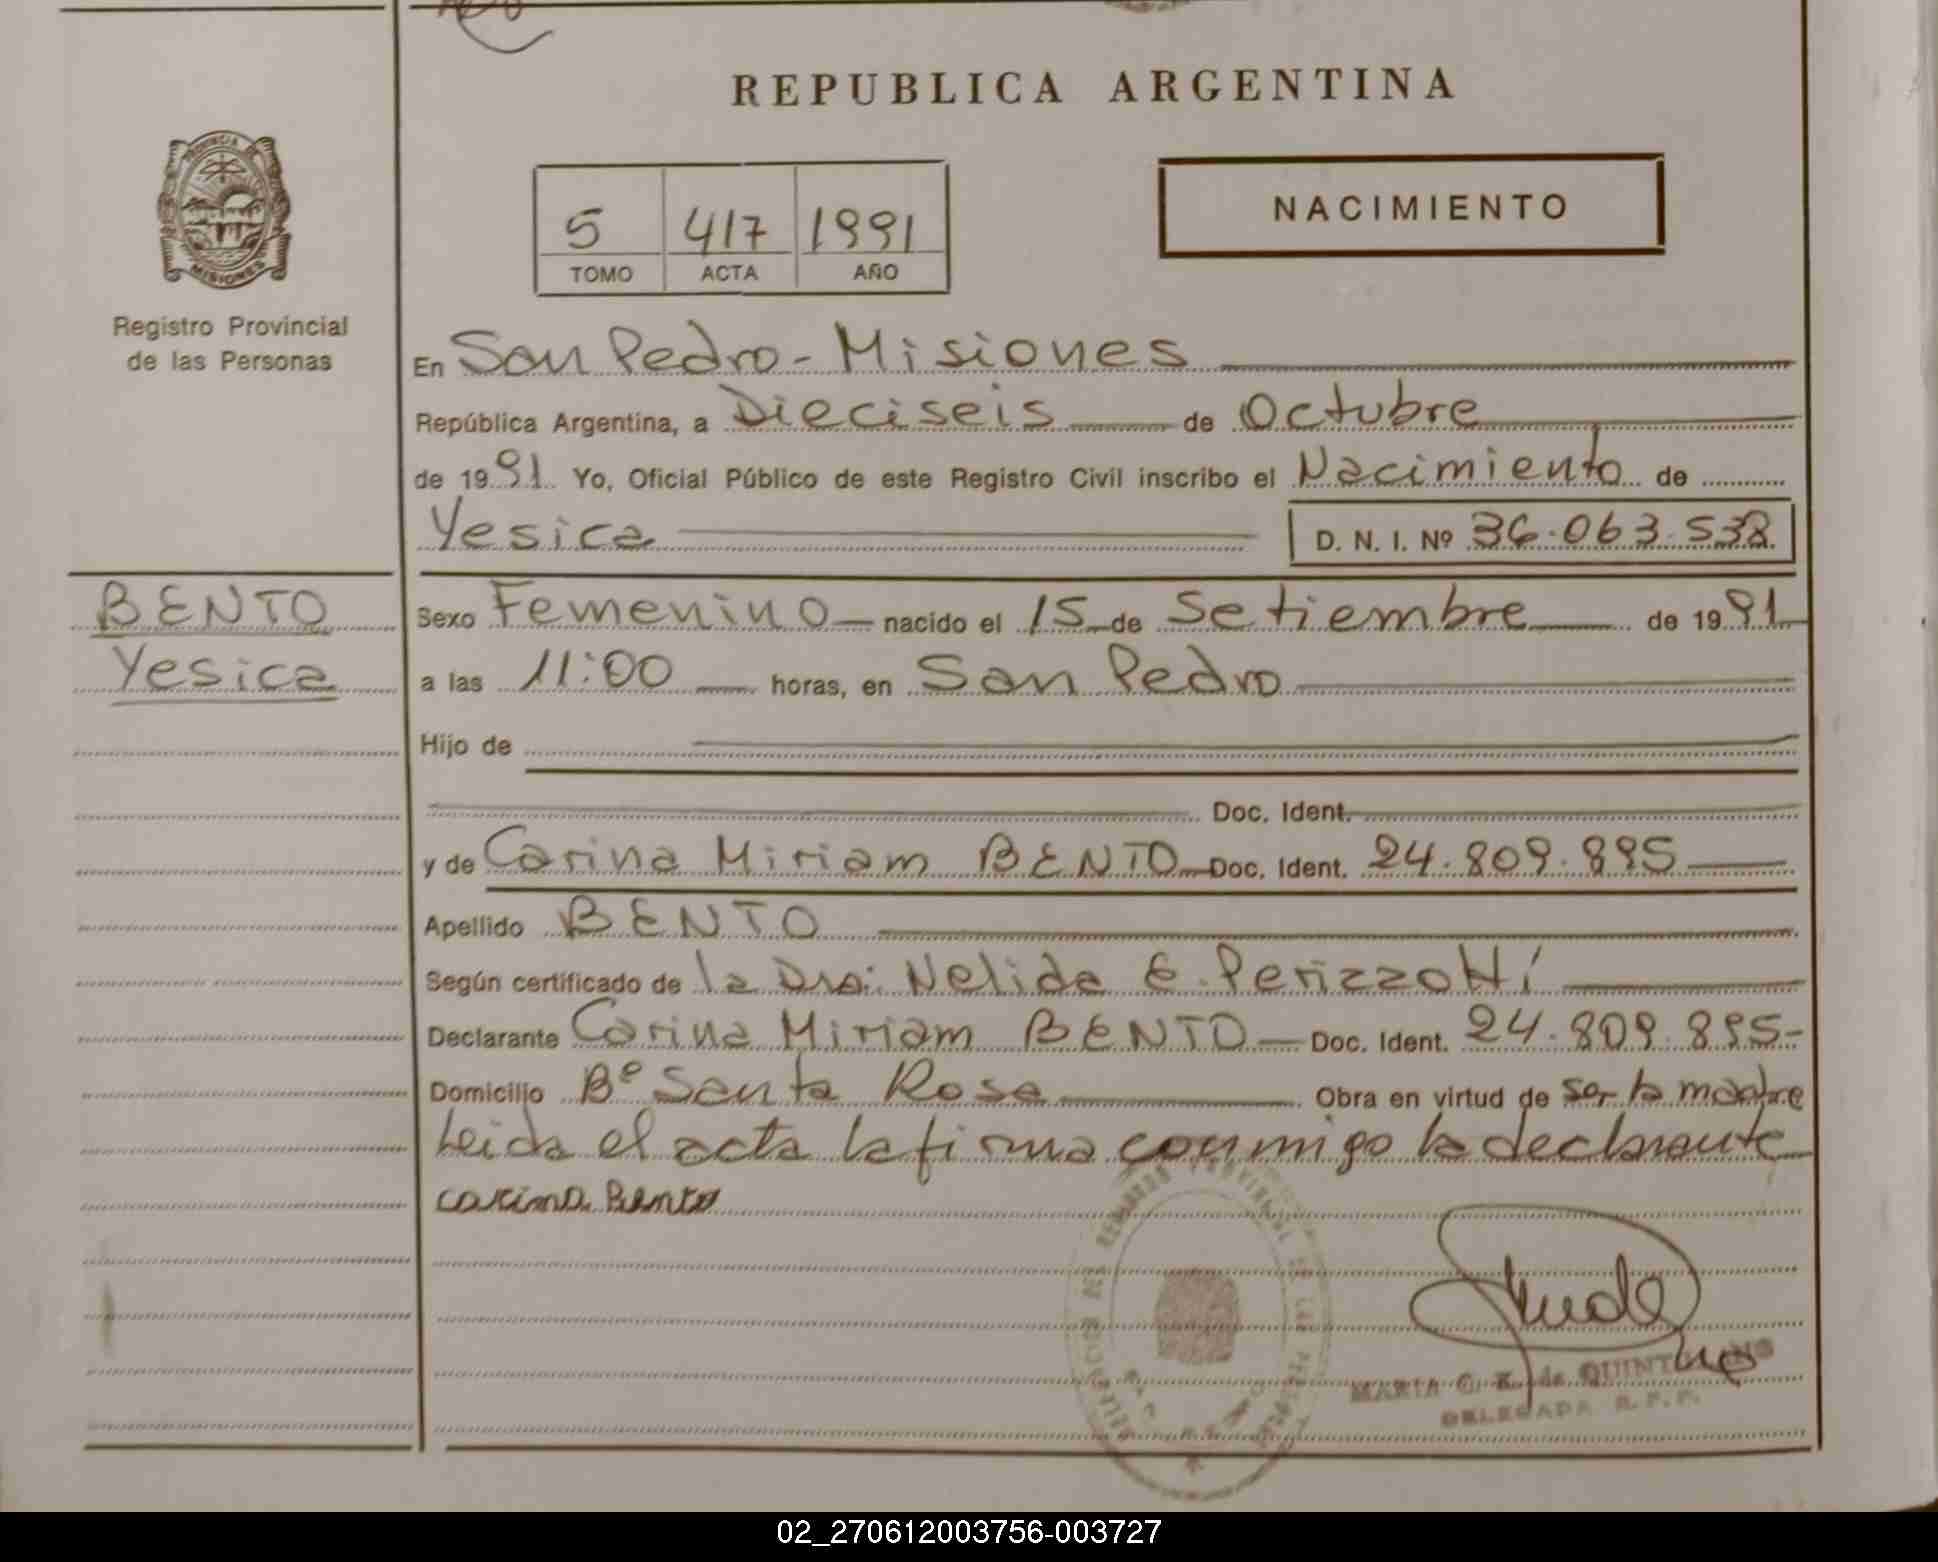 REPUBLICA ARGENTINA
PROVINCIA DE
MISIONES
Registro Provincial
de las Personas
5 417 1991
TOMO ACTA AÑO
NACIMIENTO
En San Pedro - Misiones
República Argentina, a Dieciseis de Octubre
de 1991 Yo, Oficial Público de este Registro Civil inscribo el Nacimiento de
Yesica D. N. I. Nº 36.063.538
BENTO
Yesica
Sexo Femenino nacido el 15 de Setiembre de 1991
a las 11:00 horas, en San Pedro
Hijo de
Doc. Ident.
y de Carina Miriam BENTO Doc. Ident. 24.809.895
Apellido BENTO
Según certificado de la Dra: Nelida E. Perizzottí
Declarante Carina Miriam BENTO Doc. Ident. 24.809.895-
Domicilio Bº Santa Rosa Obra en virtud de ser la madre
Leida el acta la firma conmigo la declarante
carina Bento
MARIA C. de
DELEGADA R. P. P.
02_270612003756-003727